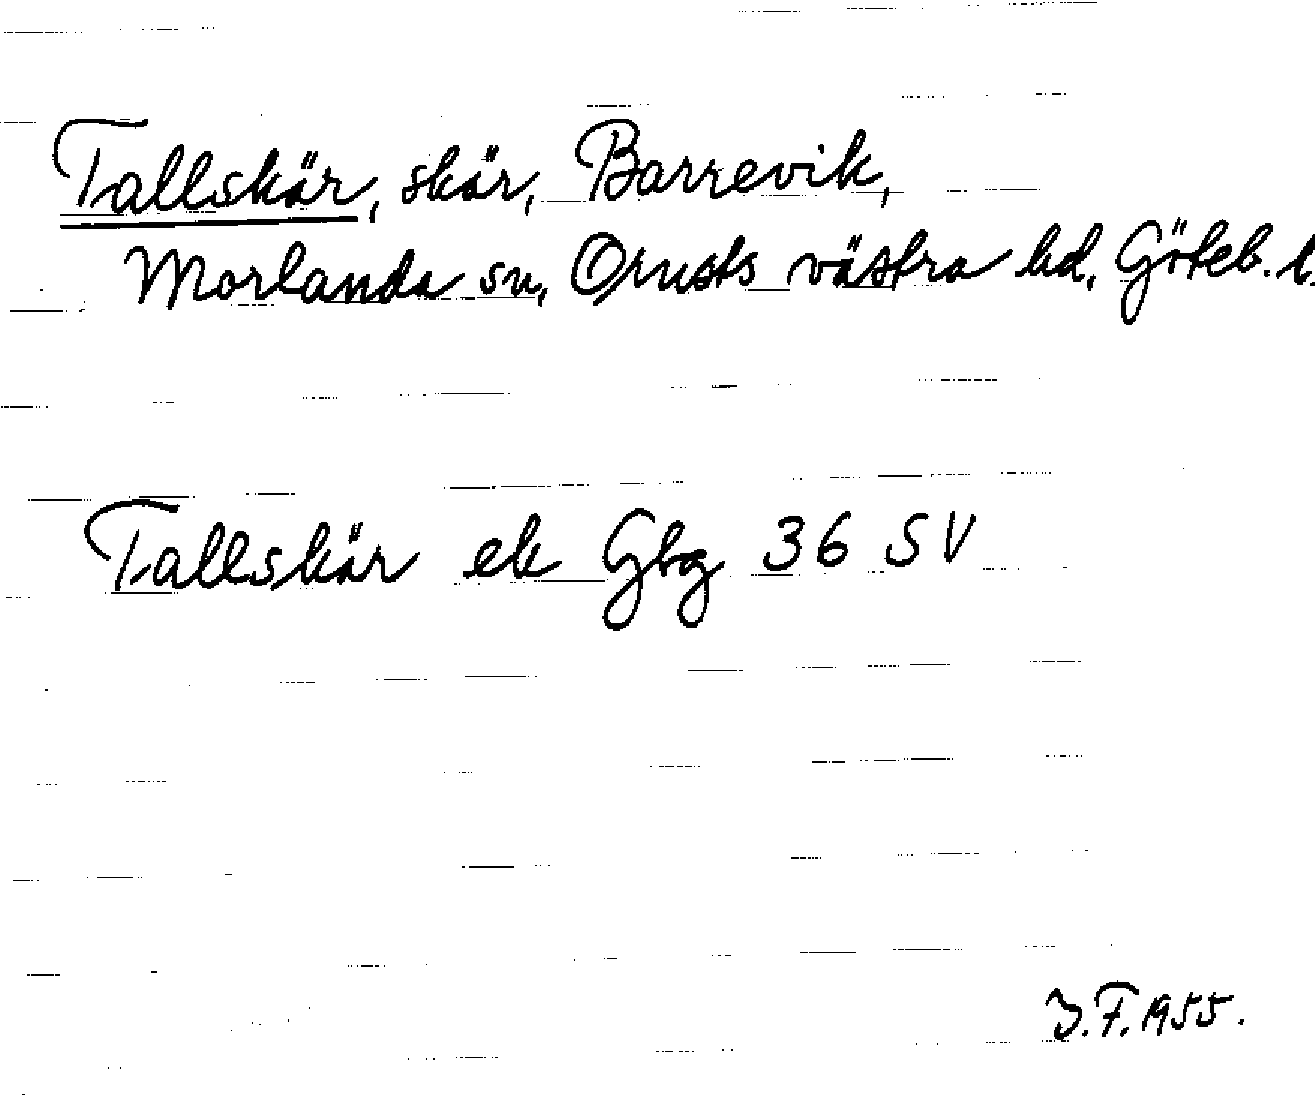 Tallskär, skär, Barrevik,
Morlanda sn, Orusts västra hd, Göteb. l.
Tallskär ek Gbg 36 SV
J.F. 1955.